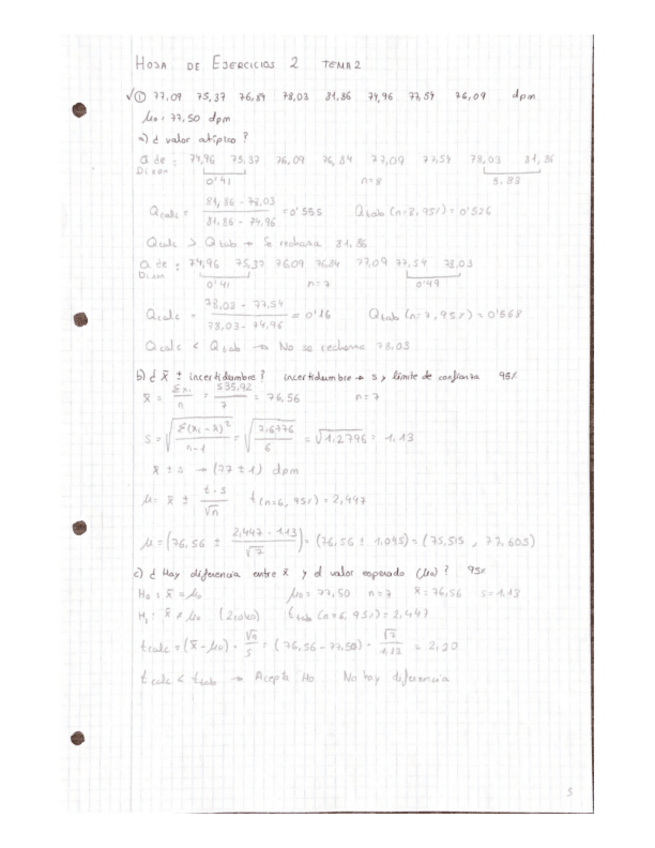 HOJA DE EJERCICIOS 2 TEMA 2
√① 77,09 75,37 76,84 78,03 81,86 74,96 77,54 76,09 dpm
μ₀ = 77,50 dpm
a) ¿ valor atípico ?
Q de Dixon : 74,96 75,37 76,09 76,84 77,09 77,54 78,03 81,86
0'41 n=8 3,83
Qcalc = (81,86 - 78,03) / (81,86 - 74,96) = 0'555 Qtab (n=8, 95%) = 0'526
Qcalc > Qtab → Se rechaza 81,86
Q de Dixon : 74,96 75,37 76,09 76,84 77,09 77,54 78,03
0'41 n=7 0'49
Qcalc = (78,03 - 77,54) / (78,03 - 74,96) = 0'16 Qtab (n=7, 95%) = 0'568
Qcalc < Qtab → No se rechaza 78,03
b) ¿ x̄ ± incertidumbre ? incertidumbre → s y límite de confianza 95%
x̄ = Σxᵢ / n = 535,92 / 7 = 76,56 n=7
s = √(Σ(xᵢ - x̄)² / (n-1)) = √(7,6776 / 6) = √1,2796 = 1,13
x̄ ± s → (77 ± 1) dpm
μ = x̄ ± t · s / √n t(n=6, 95%) = 2,447
μ = (76,56 ± 2,447 · 1,13 / √7) = (76,56 ± 1,045) = (75,515 , 77,605)
c) ¿ Hay diferencia entre x̄ y el valor esperado (μ₀) ? 95%
H₀ : x̄ = μ₀ μ₀ = 77,50 n=7 x̄ = 76,56 s = 1,13
H₁ : x̄ ≠ μ₀ (2 colas) ttab (n=6, 95%) = 2,447
tcalc = (x̄ - μ₀) · √n / s = (76,56 - 77,50) · √7 / 1,13 = 2,20
tcalc < ttab → Acepta H₀ No hay diferencia
5